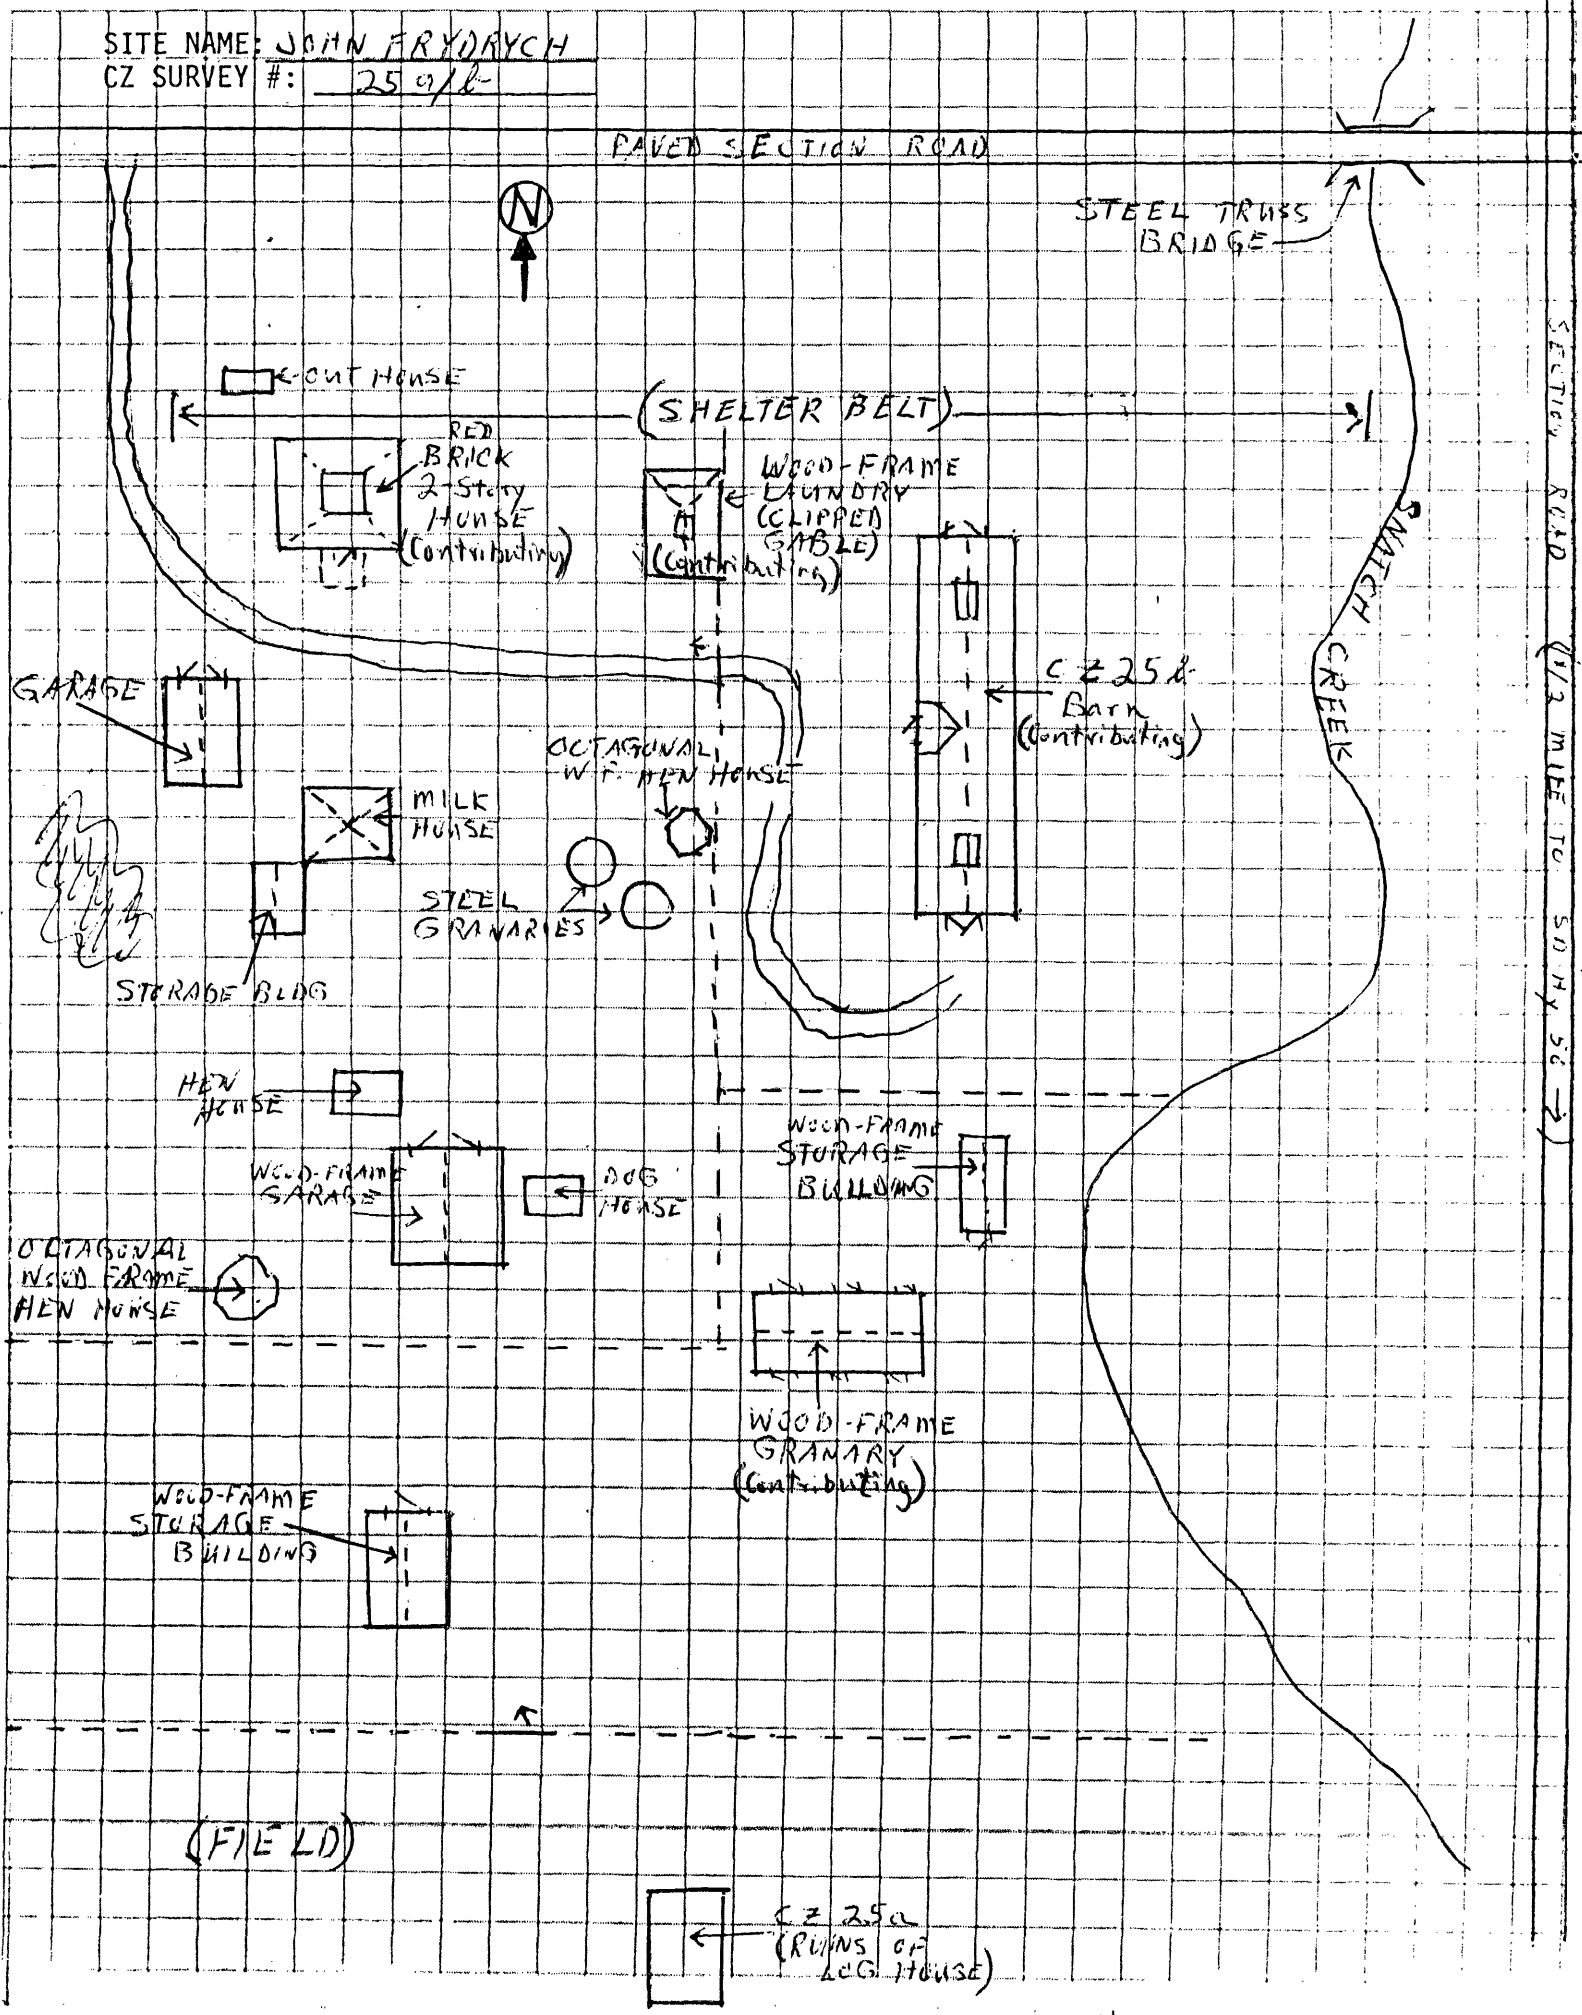 SITE NAME: JOHN FRYDRYCH
CZ SURVEY #: 25 a/b
PAVED SECTION ROAD
N
STEEL TRUSS
BRIDGE
OUT HOUSE
(SHELTER BELT)
RED
BRICK
2-Story
HOUSE
(Contributing)
WOOD-FRAME
LAUNDRY
(CLIPPED
GABLE)
(Contributing)
SNATCH CREEK
SECTION ROAD (1/2 MILE TO SD Hy 50 →)
GARAGE
CZ 25b
Barn
(Contributing)
OCTAGONAL
W.F. HEN HOUSE
MILK
HOUSE
STEEL
GRANARIES
STORAGE BLDG
HEN
HOUSE
WOOD-FRAME
GARAGE
DOG
HOUSE
WOOD-FRAME
STORAGE
BUILDING
OCTAGONAL
WOOD FRAME
HEN HOUSE
WOOD-FRAME
GRANARY
(Contributing)
WOOD-FRAME
STORAGE
BUILDING
(FIELD)
CZ 25a
(RUINS OF
LOG HOUSE)